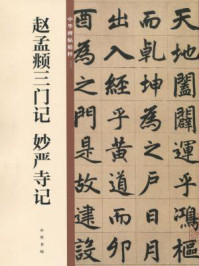 天地闔闢運乎鴻樞
而乾坤為之戶日月
出入經乎黃道而卯
酉為之門是故建設
中华碑帖精粹
赵孟頫三门记 妙严寺记
中华书局